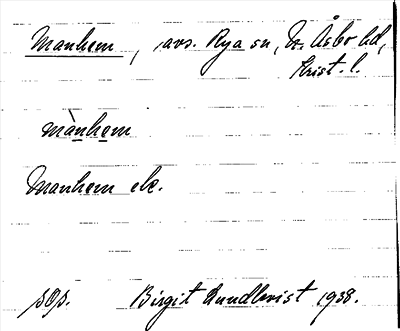 Manhem, avs. Rya sn, N. Åsbo hd,
Krist. l.
mànhem
Manhem ek.
Birgit Lundkvist 1938.